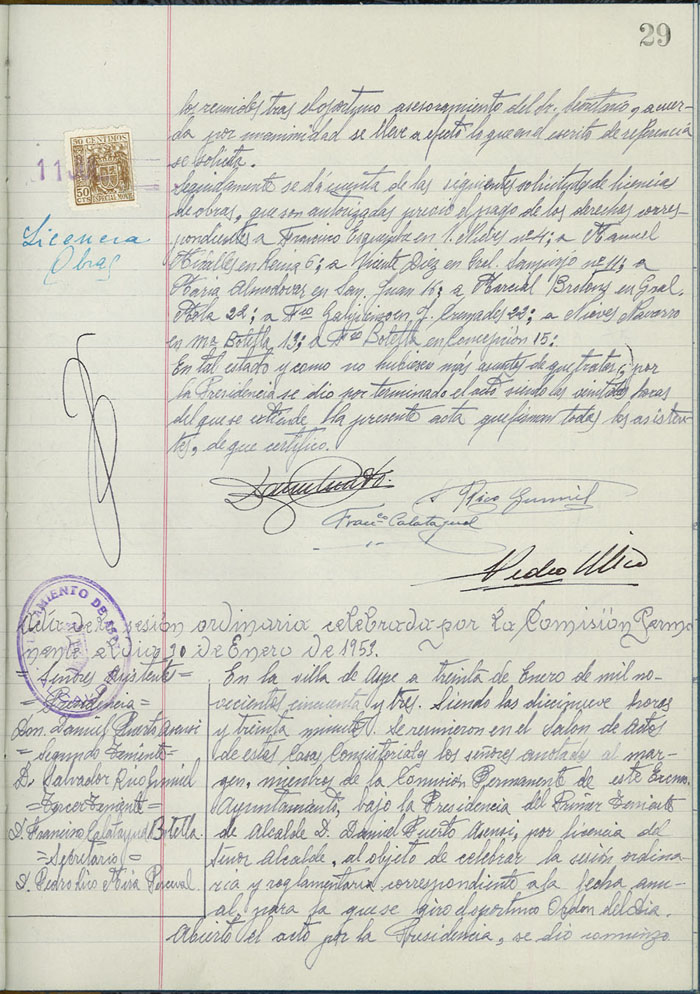 29
los reunidos tras el oportuno asesoramiento del Sr. Secretario, y acuer-
da por unanimidad se lleve a efecto lo que en el escrito de referencia
se solicita.
Seguidamente se dá cuenta de las siguientes solicitudes de licencia
de obras, que son autorizadas previo el pago de los derechos corres-
pondientes a Francisco en V. Nieves nº 4; a Manuel
Mirálles en Reina 6; a Vicente Díez en Gral. Sanjurjo nº 11; a
María Almodovar en San Juan 16; a Marcial en Gral.
Mola 22; a Fco en 22; a Nieves Navarro
en Mª Botella 13; a Fco Botella en Concepción 15;
En tal estado y como no hubiesen más asuntos de que tratar, por
la Presidencia se dio por terminado el acto siendo las veintidos horas
del que se extiende la presente acta que firman todos los asisten-
tes, de que certifico.
50 CENTIMOS
50
CTS
ESPECIAL MOVIL
Licencia
Obras
Franco Calatayud
Pedro Mico
AYUNTAMIENTO DE
Acta de la sesión ordinaria celebrada por la Comisión Perma-
nente el dia 30 de Enero de 1953.
= Señores Asistentes =
Presidencia
Don. Daniel Puerto Asensi
= Segundo Teniente =
D. Salvador Rico Jumiel
= Tercer Teniente =
D. Francisco Calatayud Botella.
= Secretario =
D. Pedro Rico Mira Perceval
En la villa de Aspe a treinta de Enero de mil no-
vecientos cincuenta y tres. Siendo las diecinueve horas
y treinta minutos. Se reunieron en el Salon de Actos
de estas Casas Consistoriales los señores anotados al mar-
gen, miembros de la Comisión Permanente de este Excmo.
Ayuntamiento, bajo la Presidencia del Primer Teniente
de Alcalde D. Daniel Puerto Asensi, por licencia del
Señor Alcalde, al objeto de celebrar la sesión ordina-
ria y reglamentaria correspondiente a la fecha
para la que se giro el oportuno Orden del Dia.
Abierto el acto por la Presidencia, se dio comienzo